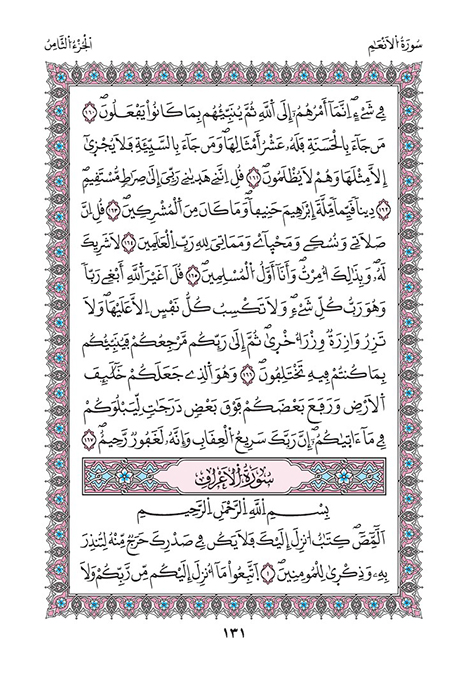 سُورَةُ الْأَنْعَامِ
الْجُزْءُ الثَّامِنُ
فِي شَےْءٍ اِنَّمَآ أَمْرُهُمُۥٓ إِلَى اَللَّهِ ثُمَّ يُنَبِّئُهُم بِمَا كَانُواْ يَفْعَلُونَۖ ١٦٠
مَن جَآءَ بِالْحَسَنَةِ فَلَهُۥ عَشْرُ أَمْثَالِهَاۖ وَمَن جَآءَ بِالسَّيِّئَةِ فَلَا يُجْز۪يٰٓ
إِلَّا مِثْلَهَا وَهُمْ لَا يُظْلَمُونَۖ ١٦١ قُلِ اِنَّنِے هَد۪يٰنِے رَبِّيَ إِلَىٰ صِرَاطٖ مُّسْتَقِيمٖ
١٦٢ دِيناٗ قَيِّماٗ مِّلَّةَ إِبْرَٰهِيمَ حَنِيفاٗۖ وَمَا كَانَ مِنَ اَلْمُشْرِكِينَۖ ١٦٣ قُلِ اِنَّ
صَلَاتِے وَنُسُكِے وَمَحْي۪آےْ وَمَمَاتِيَ لِلهِ رَبِّ اِلْعَٰلَمِينَ ١٦٤ لَا شَرِيكَ
لَهُۥۖ وَبِذَٰلِكَ أُمِرْتُۖ وَأَنَآ أَوَّلُ اُلْمُسْلِمِينَۖ ١٦٥ قُلَ اَغَيْرَ اَللَّهِ أَبْغِے رَبّاٗ
وَهُوَ رَبُّ كُلِّ شَےْءٖۖ وَلَا تَكْسِبُ كُلُّ نَفْسٍ اِلَّا عَلَيْهَاۖ وَلَا
تَزِرُ وَازِرَةٞ وِزْرَ أُخْر۪يٰۖ ثُمَّ إِلَىٰ رَبِّكُم مَّرْجِعُكُمْ فَيُنَبِّئُكُم
بِمَا كُنتُمْ فِيهِ تَخْتَلِفُونَۖ ١٦٦ وَهُوَ اَلذِے جَعَلَكُمْ خَلَٰٓئِفَ
اَلْأَرْضِ وَرَفَعَ بَعْضَكُمْ فَوْقَ بَعْضٖ دَرَجَٰتٖ لِّيَبْلُوَكُمْ
فِے مَآ ءَات۪يٰكُمُۥٓۖ إِنَّ رَبَّكَ سَرِيعُ اُلْعِقَابِ وَإِنَّهُۥ لَغَفُورٞ رَّحِيمٞۖ ١٦٧
سُورَةُ الْأَعْرَافِ
بِسْمِ اِللَّهِ اِلرَّحْمَٰنِ اِلرَّحِيمِ
أَلَٓمِّٓصَٓۖ كِتَٰبٌ اُنزِلَ إِلَيْكَ فَلَا يَكُن فِے صَدْرِكَ حَرَجٞ مِّنْهُ لِتُنذِرَ
بِهِۦ وَذِكْر۪يٰ لِلْمُومِنِينَۖ ١ اَتَّبِعُواْ مَآ أُنزِلَ إِلَيْكُم مِّن رَّبِّكُمْ وَلَا
١٣١